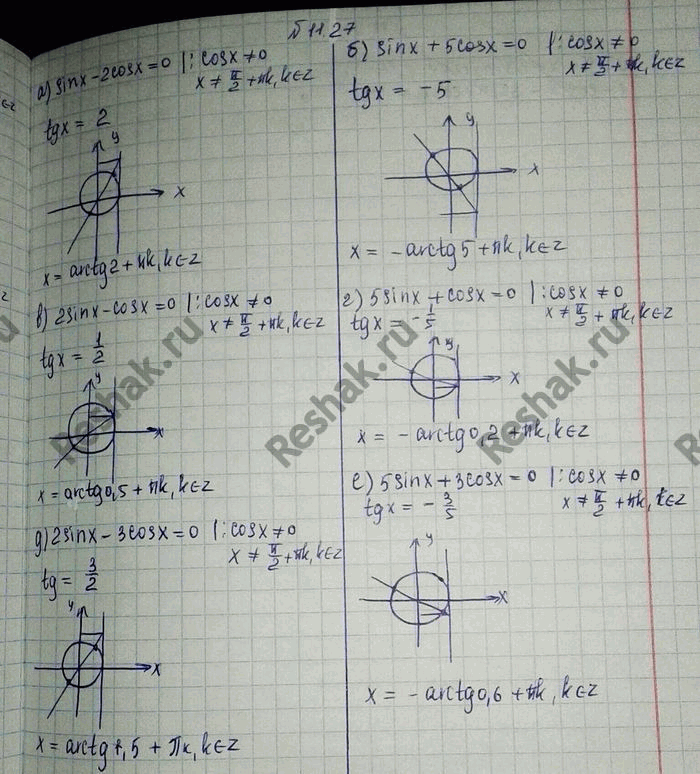 № 11.27
а) sinx - 2cosx = 0 |: cosx ≠ 0
x ≠ π/2 + πk, k∈z
tgx = 2
y
x
x = arctg2 + πk, k∈z
б) sinx + 5cosx = 0 |: cosx ≠ 0
x ≠ π/2 + πk, k∈z
tgx = -5
y
x
x = -arctg5 + πk, k∈z
в) 2sinx - cosx = 0 |: cosx ≠ 0
x ≠ π/2 + πk, k∈z
tgx = 1/2
y
x
x = arctg0,5 + πk, k∈z
г) 5sinx + cosx = 0 |: cosx ≠ 0
tgx = -1/5
x ≠ π/2 + πk, k∈z
y
x
x = -arctg0,2 + πk, k∈z
д) 2sinx - 3cosx = 0 |: cosx ≠ 0
x ≠ π/2 + πk, k∈z
tg = 3/2
y
x
x = arctg1,5 + πk, k∈z
е) 5sinx + 3cosx = 0 |: cosx ≠ 0
tgx = -3/5
x ≠ π/2 + πk, k∈z
y
x
x = -arctg0,6 + πk, k∈z
Reshak.ru
Reshak.ru